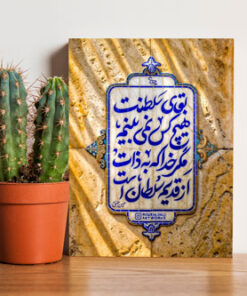 سلطنت
هیچ کس نمی بینم
مگر خدا که به ذات
از قدیم سلطان است
ARTWORKS